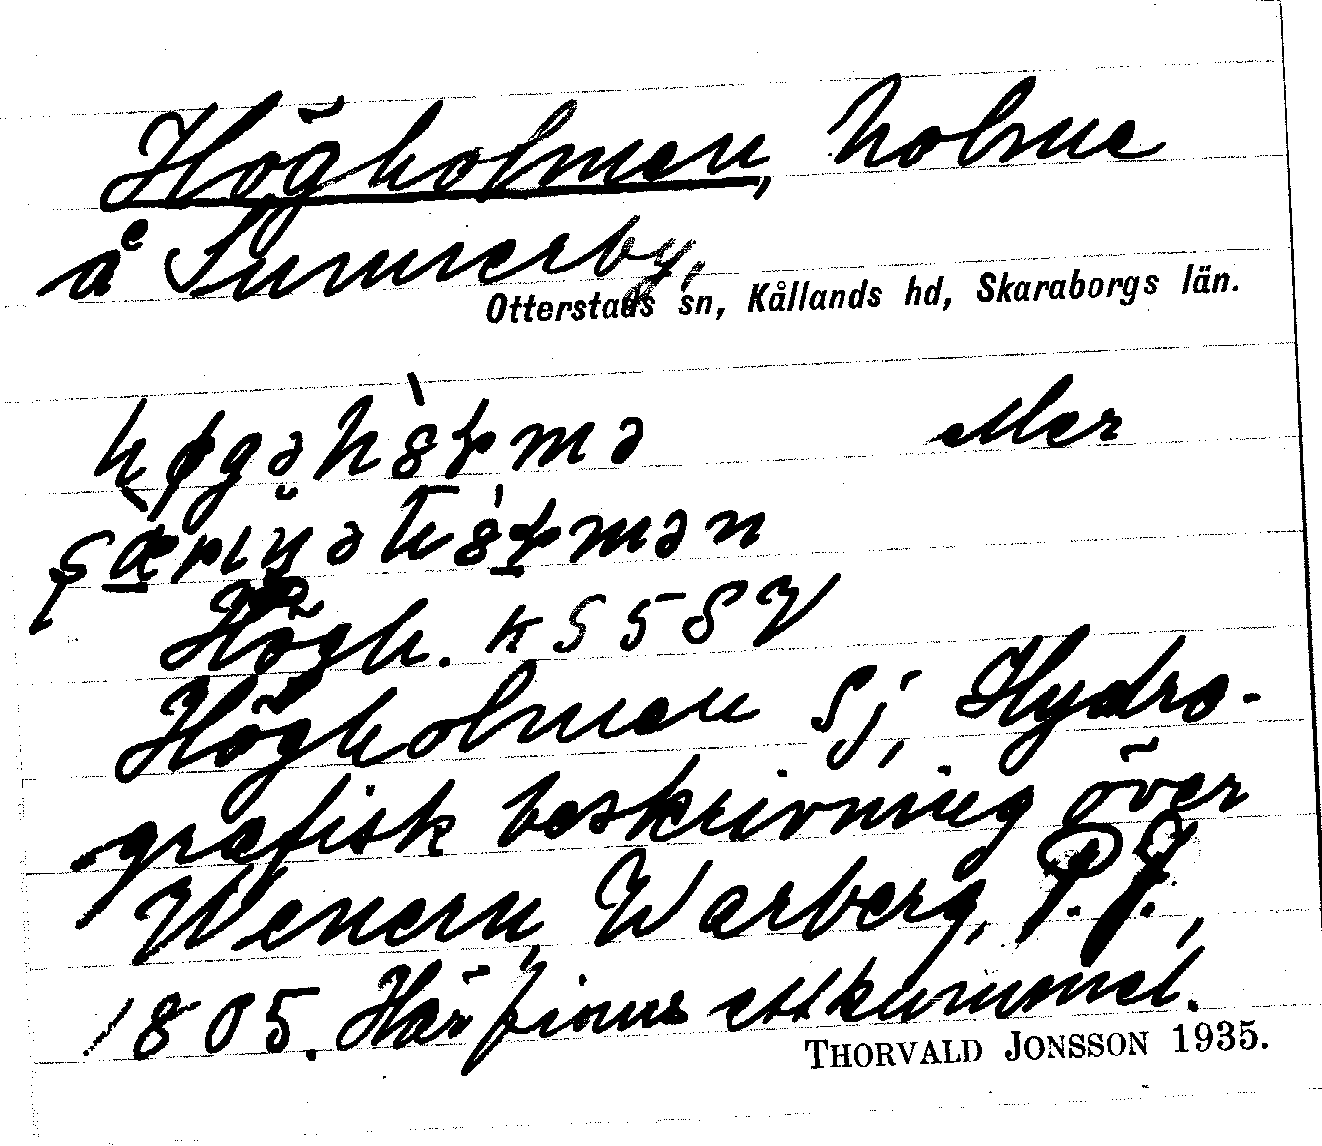 Högholmen, holme
å Sunnerby,
Otterstads sn, Kållands hd, Skaraborgs län.
eller
Högh. K S 5 S V
Högholmen Sj, Hydro-
grafisk beskrivning över
Wenern, Warberg, P.J.,
1805. Här finns ett kummel.
THORVALD JONSSON 1935.